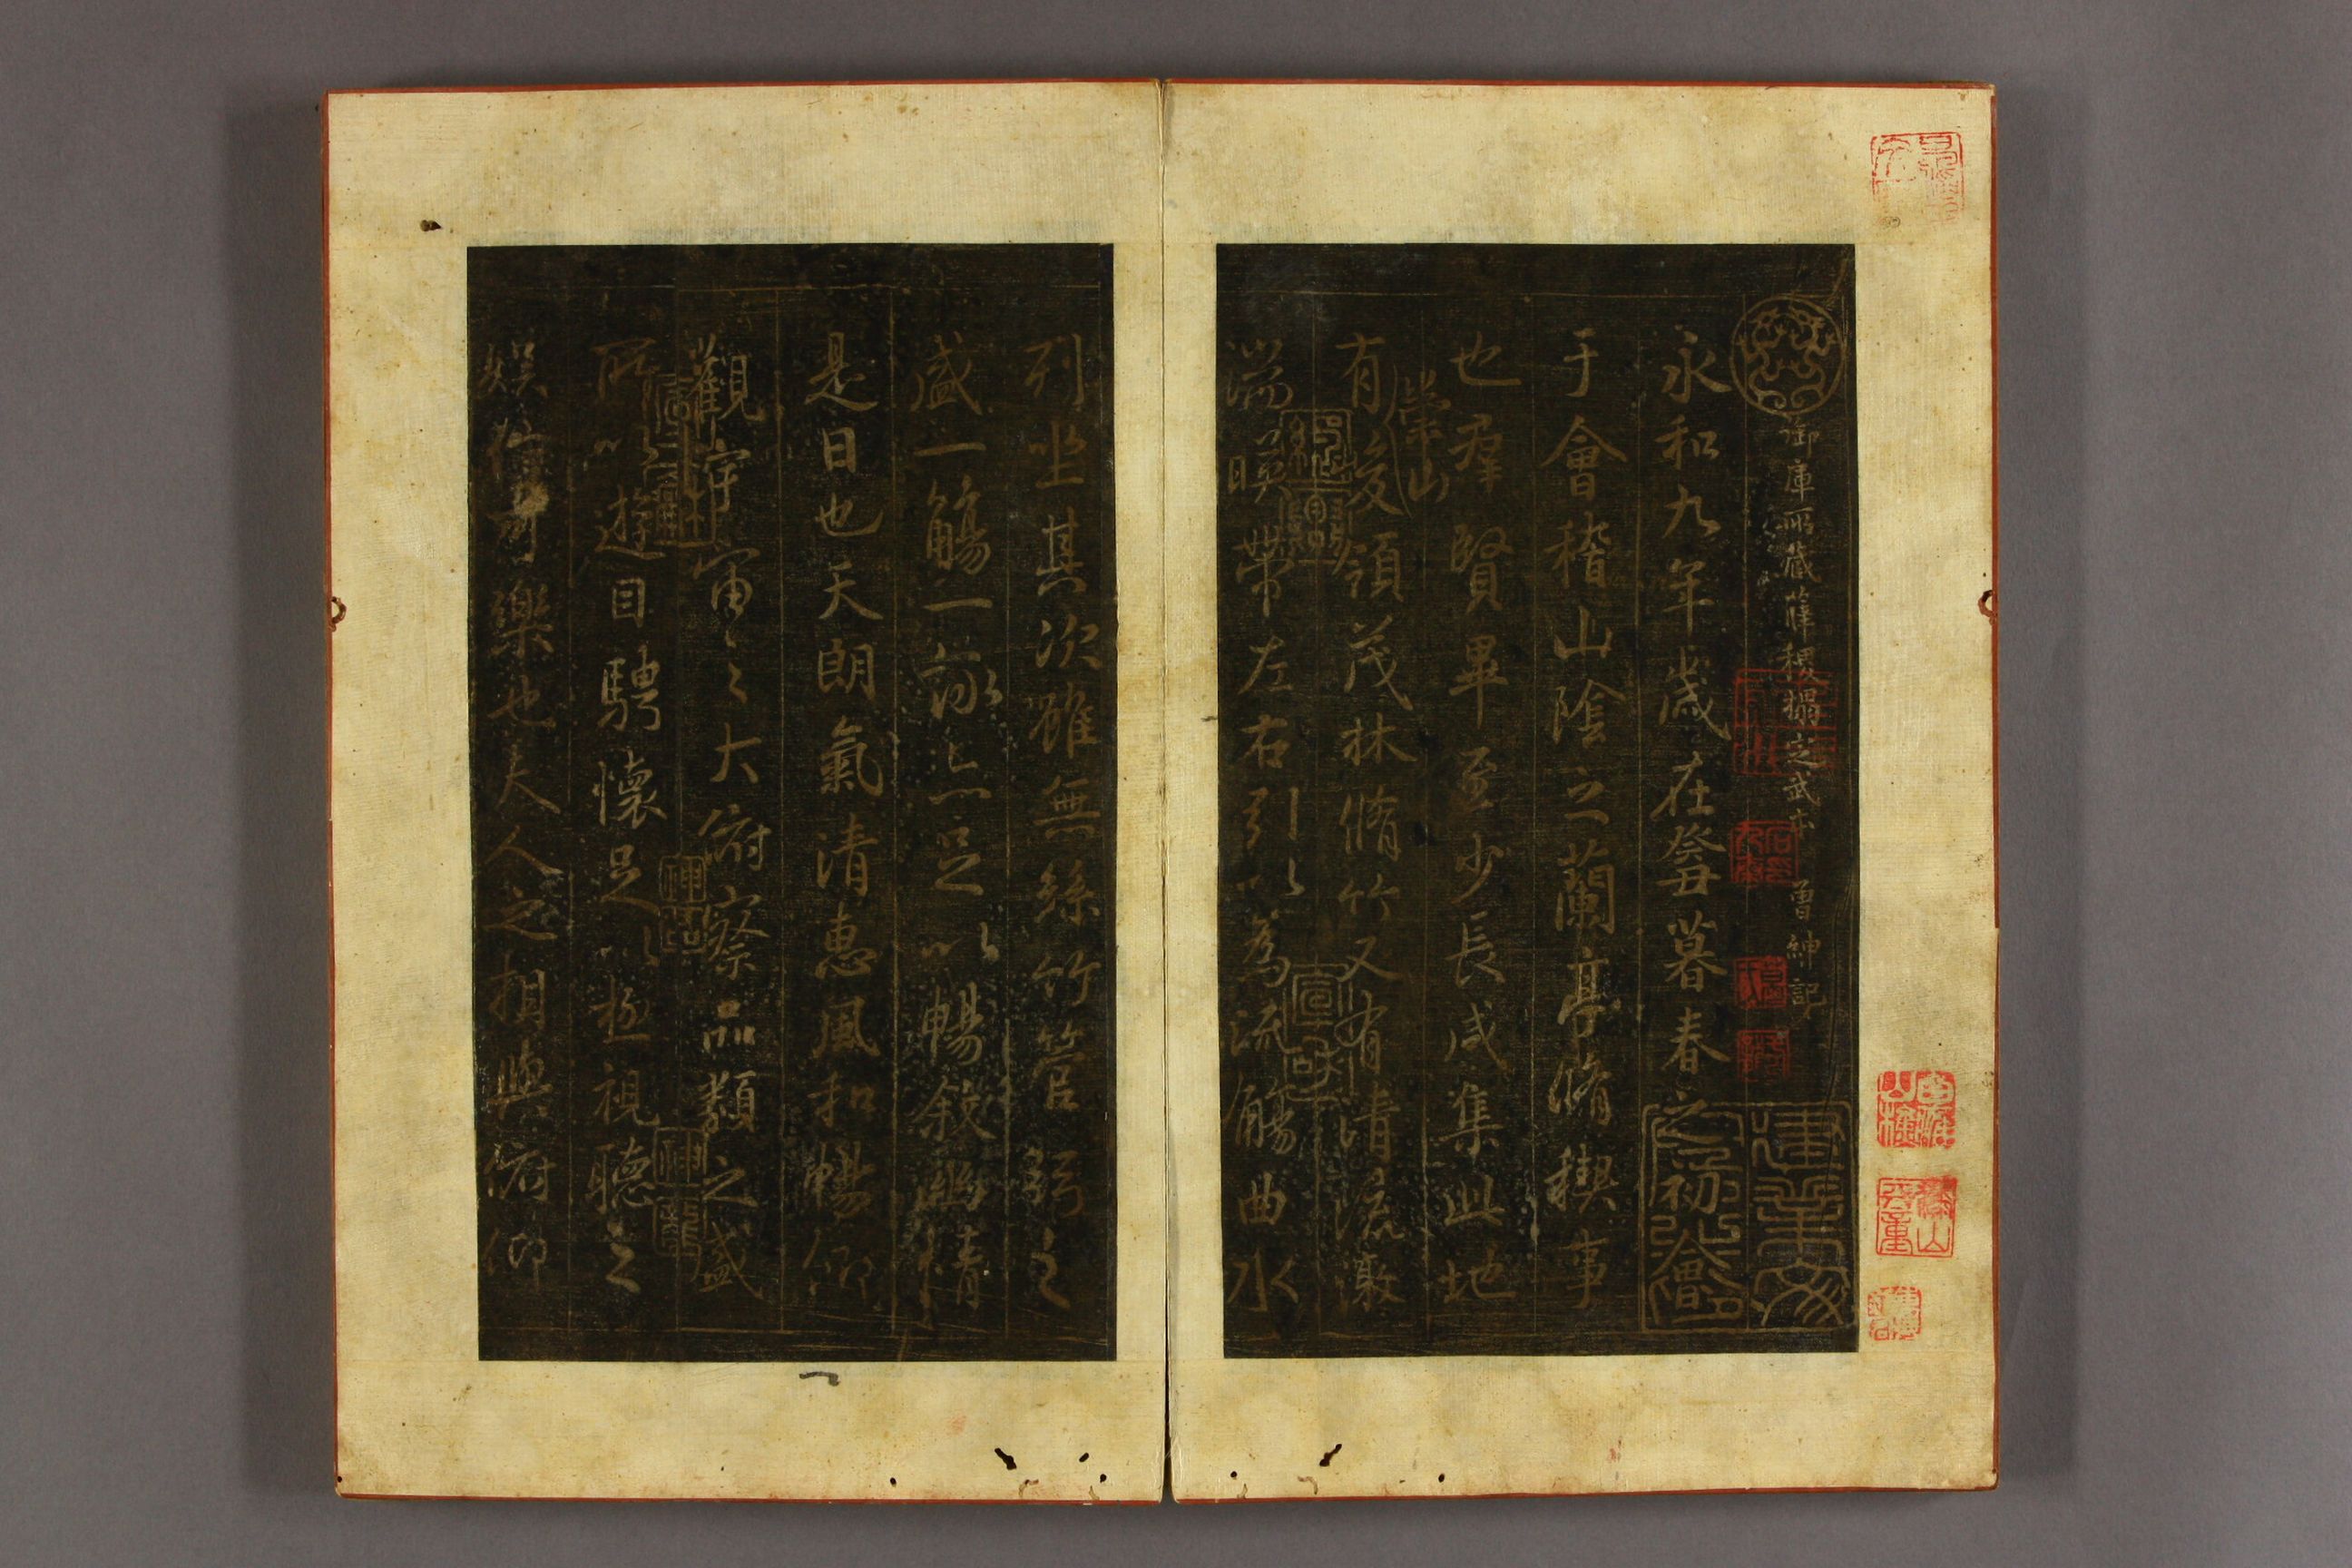 御庫所藏薛稷搨定武本 曾紳記
永和九年歲在癸丑暮春之初會
于會稽山陰之蘭亭脩稧事
也羣賢畢至少長咸集此地
有崇山峻領茂林脩竹又有清流激
湍暎帶左右引以為流觴曲水
列坐其次雖無絲竹管弦之
盛一觴一詠亦足以暢敘幽情
是日也天朗氣清惠風和暢仰
觀宇宙之大俯察品類之盛
所以遊目騁懷足以極視聽之
娛信可樂也夫人之相與俯仰
神龍
宣和